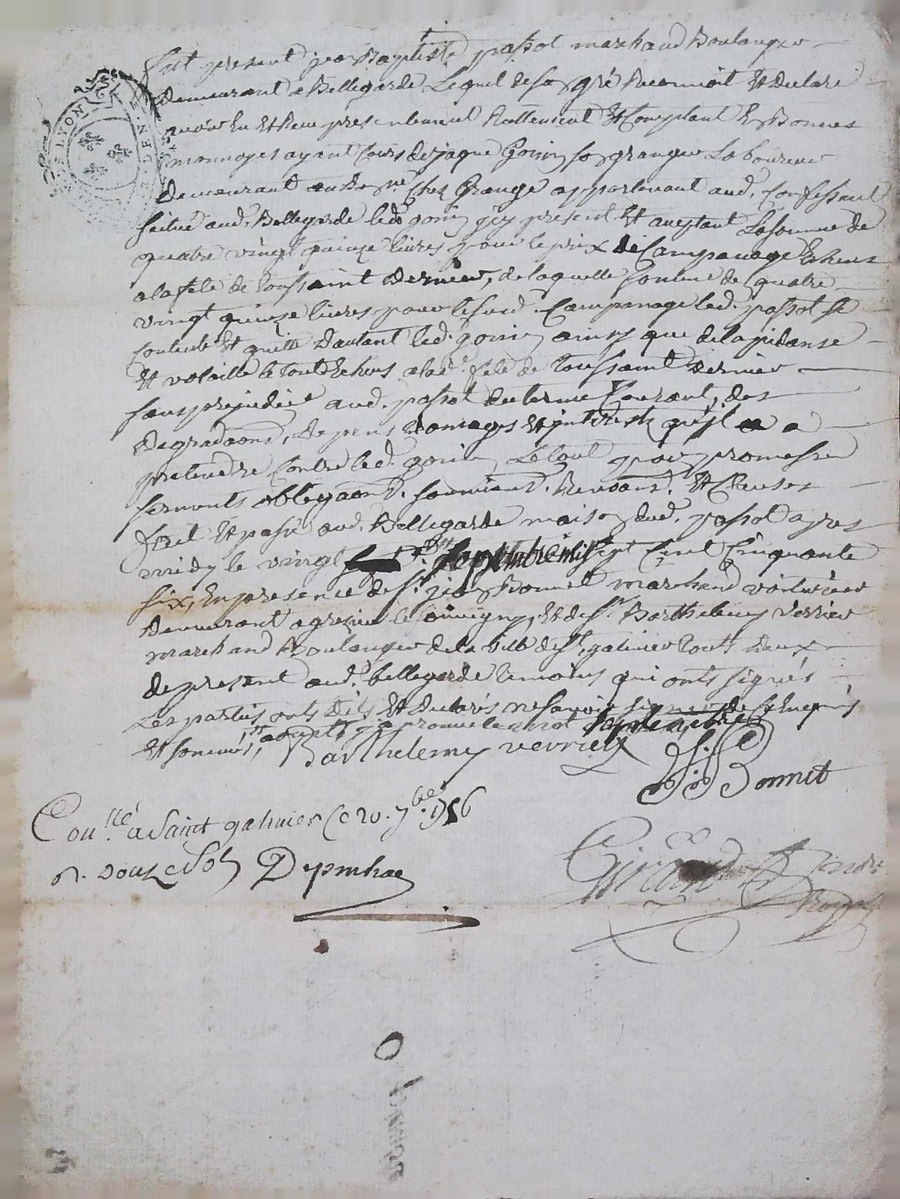 GEN. DE LYON
fut present jean Baptiste passot marchand Boulanger
demeurant a Bellegarde Lequel de son gré Reconnoit Et declare
avoir Eu Et Receu presentement Reellement Et Comptant En Bonnes
monnoyes ayant Cours de jaque Gonin son granger Laboureur
demeurant au domne Chez Grange appartenant aud. Confessant
scitué aud. Bellegarde led. gonin icy present Et aceptant La somme de
quatre vingt quinze livres pour le prix de Campanage Echeus
a la fete de toussaint dernier, de laquelle somme de quatre
vingt quinze livres pour le susd. Campanage led. passot se
Contente Et quitte d'autant led. gonin ainsy que de la pidanse
Et volaille le tout Echeus a lad. fete de toussaint dernier
sans prejudice aud. passot du terme Courant, des
degradaons, depens domages Et interests qu'il a
pretendre Contre led. gonin, Le tout par promesse
serments obligaons. soumissions. Renons. Et Clauses
fait Et passé aud. Bellegarde maison dud. passot apres
midy le vingt septembre mil sept Cent Cinquante
six, En presence de sr. jean Bonnet marchand voiturier
demeurant a Et de sr. Barthelemy verrier
marchand Boulanger de la ville de st. galmier tous deux
de present aud. bellegarde temoins qui ont signés
Les parties ont dit Et declarés ne savoir signer de Ce Enquis
Et sommés
Barthelemy verrier
J: Bonnet
Conlle. a Saint galmier Ce 20. 7bre 1756
R. douze sols
Girard